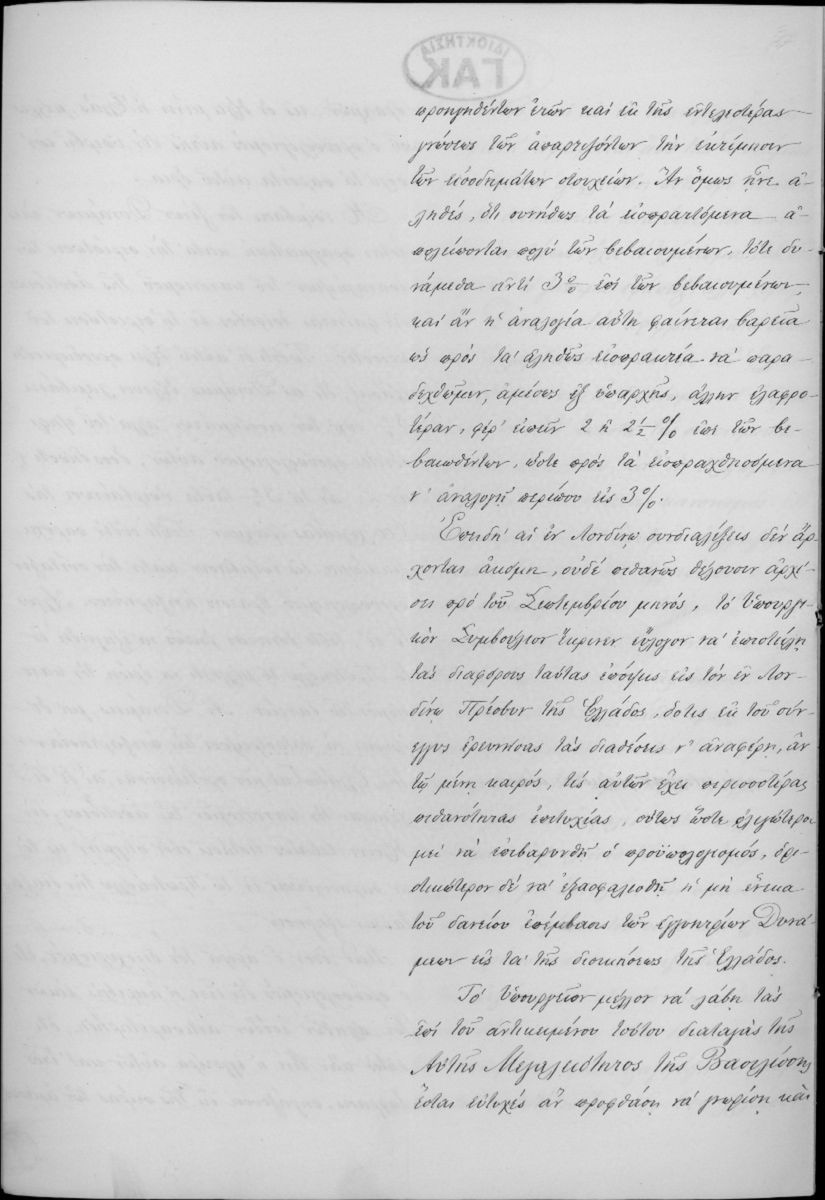 ΙΔΙΟΚΤΗΣΙΑ
ΓΑΚ
προηγηθέντων ἐτῶν καὶ ἐκ τῆς ἐντελεστέρας
γνώσεως τῶν ἀπαρτιζόντων τὴν ἐκτίμησιν
τῶν εἰσοδημάτων στοιχείων. Ἂν ὅμως ἦνε ἀ-
ληθές, ὅτι συνήθως τὰ εἰσπραττόμενα ἀ-
πολείπονται πολὺ τῶν βεβαιουμένων, τότε δυ-
νάμεθα ἀντὶ 3% ἐπὶ τῶν βεβαιουμένων,
καὶ ἂν ἡ ἀναλογία αὕτη φαίνηται βαρεῖα
ὡς πρὸς τὰ ἀληθῶς εἰσπρακτέα νὰ παρα-
δεχθῶμεν, ἀμέσως ἐξ ὑπαρχῆς, ἄλλην ἐλαφρο-
τέραν, φέρ' εἰπεῖν 2 ἢ 2 ½ % ἐπὶ τῶν βε-
βαιωθέντων, ὥστε πρὸς τὰ εἰσπραχθησόμενα
ν' ἀναλογῇ περίπου εἰς 3%.
Ἐπειδὴ αἱ ἐν Λονδίνῳ συνδιαλέξεις δὲν ἄρ-
χονται ἀκόμη, οὐδὲ πιθανῶς θέλουσιν ἀρχί-
σει πρὸ τοῦ Σεπτεμβρίου μηνός, τὸ Ὑπουργι-
κὸν Συμβούλιον ἔκρινεν εὔλογον νὰ ἐπιστείλῃ
τὰς διαφόρους ταύτας ἐπόψεις εἰς τὸν ἐν Λον-
δίνῳ Πρέσβυν τῆς Ἑλλάδος, ὅστις ἐκ τοῦ σύν-
εγγυς ἐρευνήσας τὰς διαθέσεις ν' ἀναφέρῃ, ἂν
τῷ μένῃ καιρός, τίς αὐτῶν ἔχει περισσοτέρας
πιθανότητας ἐπιτυχίας, οὕτως ὥστε ὀλιγώτερον
μεὶ νὰ ἐπιβαρυνθῇ ὁ προϋπολογισμός, ὁρι-
στικώτερον δὲ νὰ ἐξασφαλισθῇ ἡ μὴ ἕνεκα
τοῦ δανείου ἐπέμβασις τῶν ἐγγυητριῶν Δυνά-
μεων εἰς τὰ τῆς διοικήσεως τῆς Ἑλλάδος.
Τὸ Ὑπουργεῖον μέλλον νὰ λάβῃ τὰς
ἐπὶ τοῦ ἀντικειμένου τούτου διαταγὰς τῆς
Αὐτῆς Μεγαλειότητος τῆς Βασιλίσσης
ἔσται εὐτυχὲς ἂν προφθάσῃ νὰ γνωρίσῃ καὶ